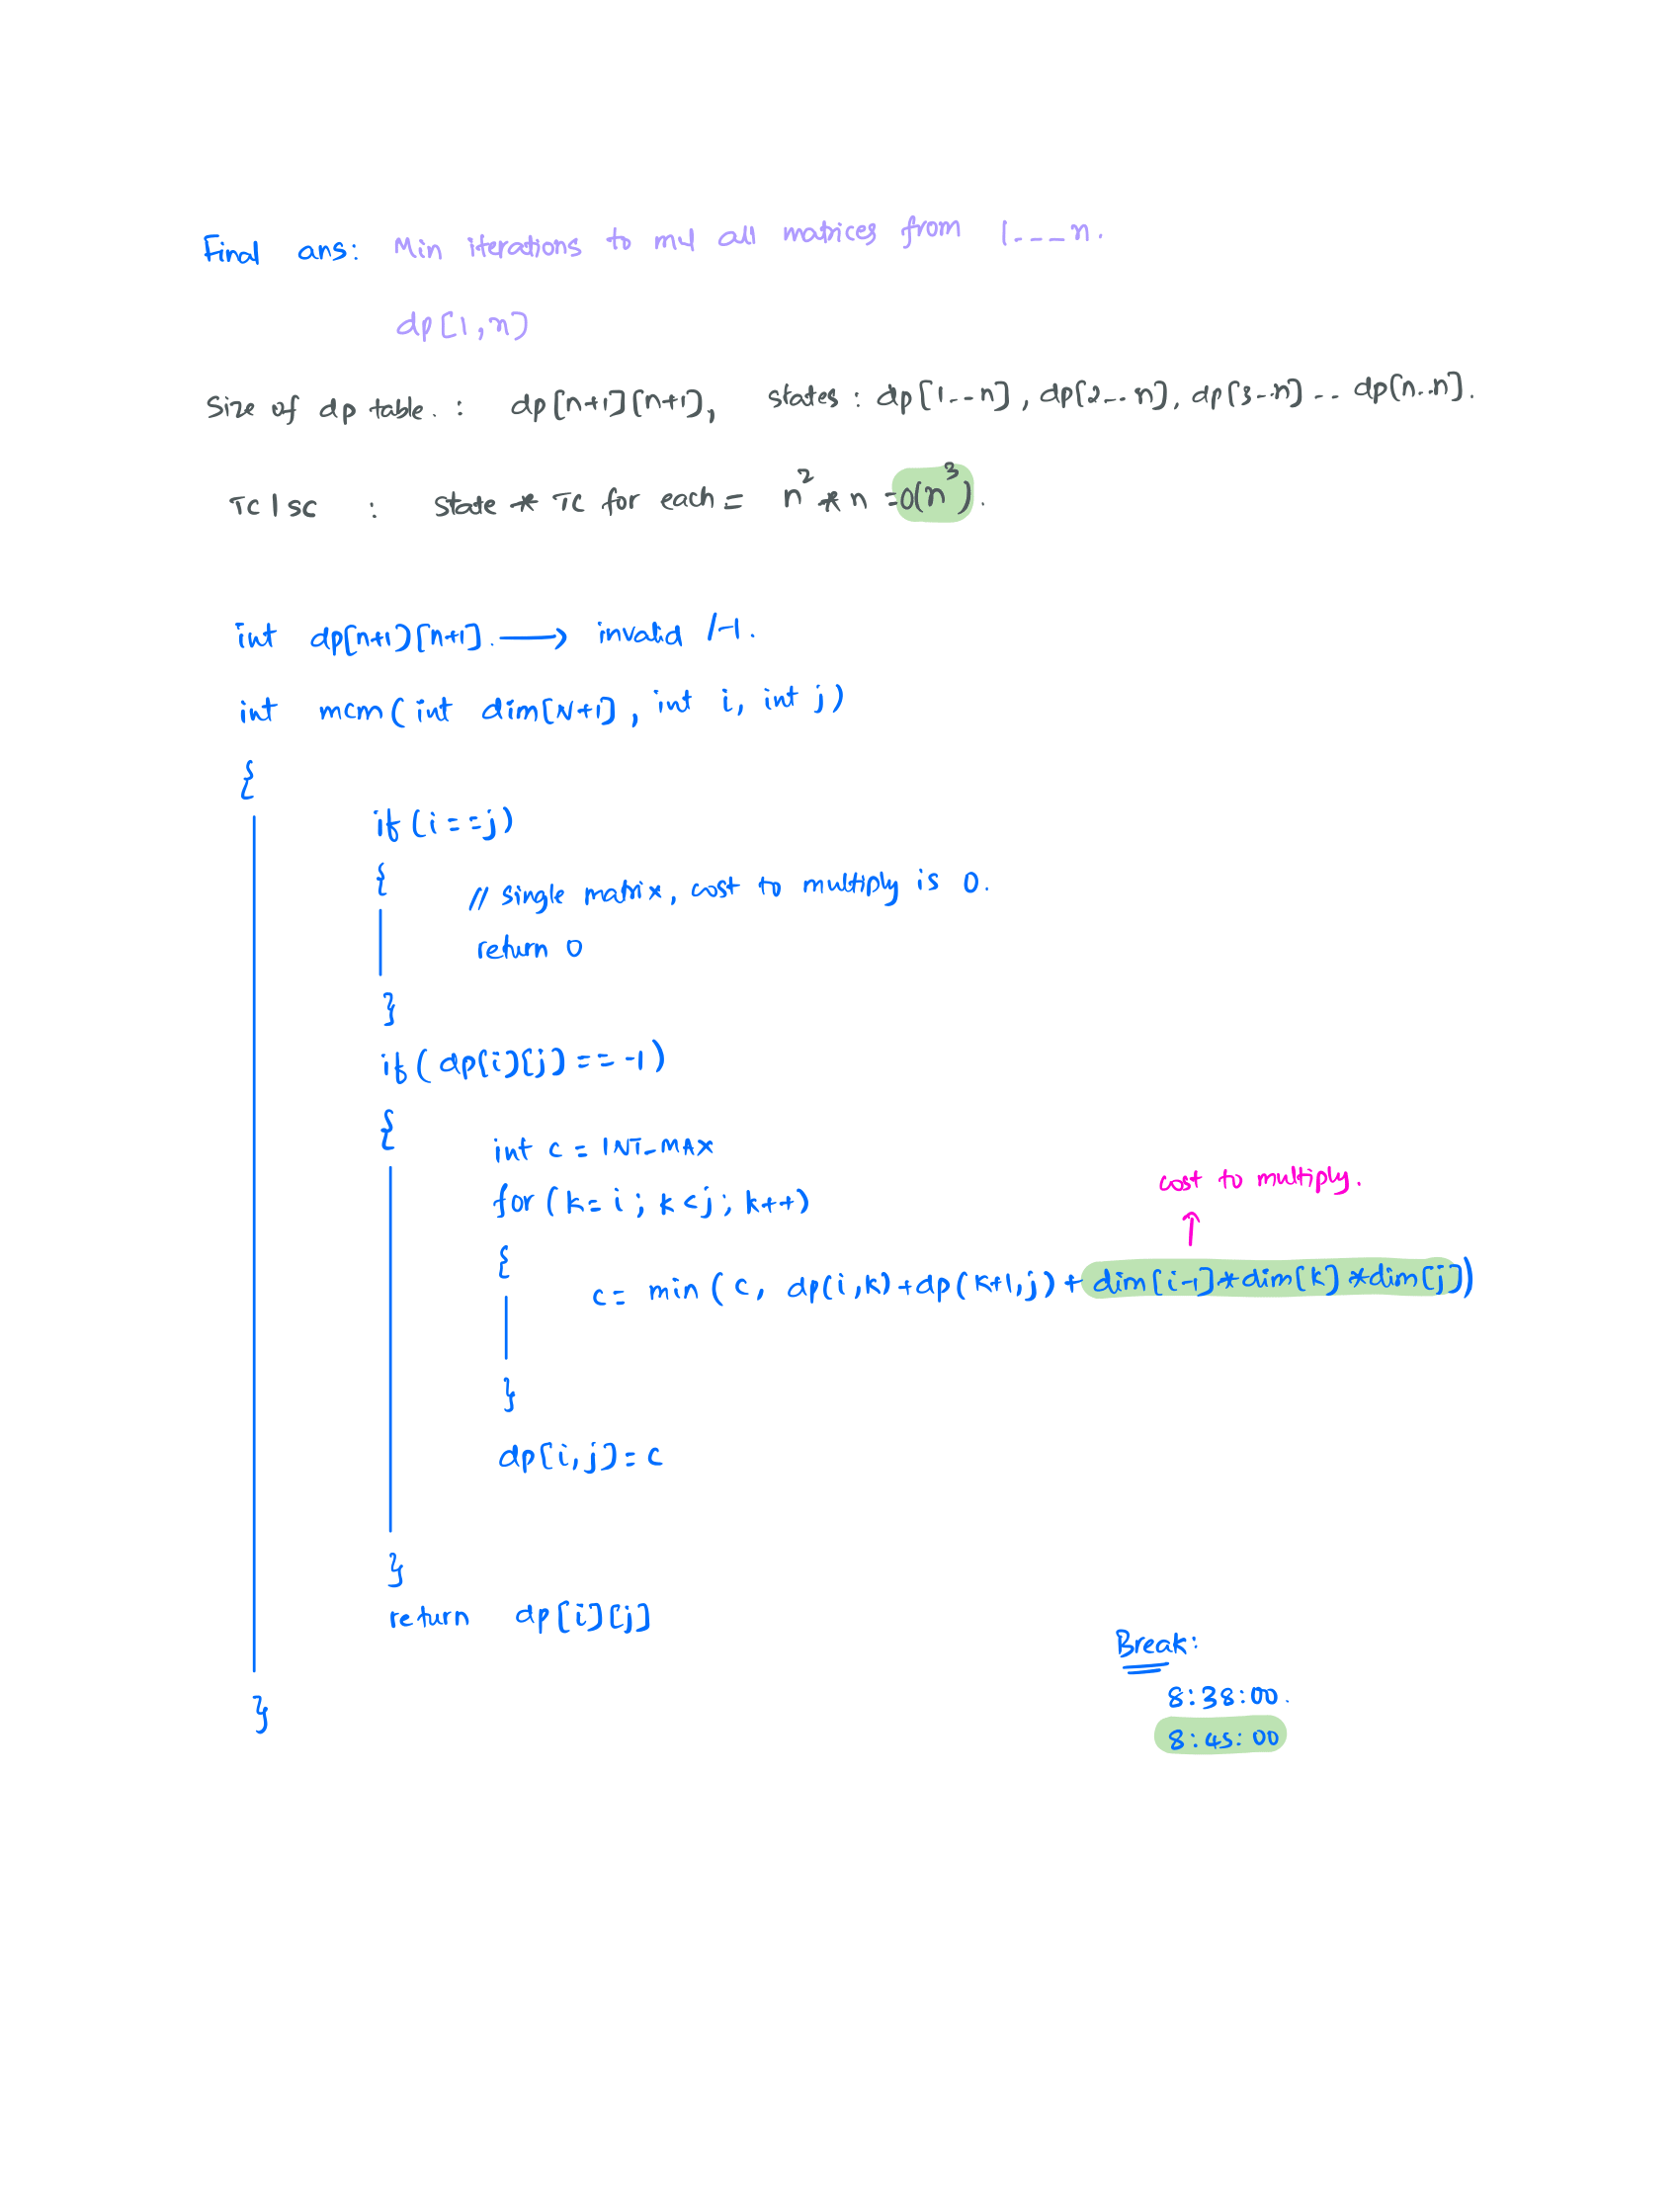 Final ans: Min iterations to mul all matrices from 1---n.
dp[1,n]
Size of dp table. : dp[n+1][n+1], states : dp[1--n], dp[2--n], dp[3--n] -- dp[n..n].
TC|SC : state * TC for each = n² * n = O(n³).
int dp[n+1][n+1]. → invalid /-1.
int mcm(int dim[N+1], int i, int j)
{
if(i==j)
{
// single matrix, cost to multiply is 0.
return 0
}
if(dp[i][j]== -1)
{
int c = INT_MAX
for(k=i; k<j; k++)
cost to multiply.
↑
{
c= min(c, dp(i,k)+dp(k+1,j)+dim[i-1]*dim[k]*dim[j])
}
dp[i,j]=c
}
return dp[i][j]
}
Break:
8:38:00.
8:45:00